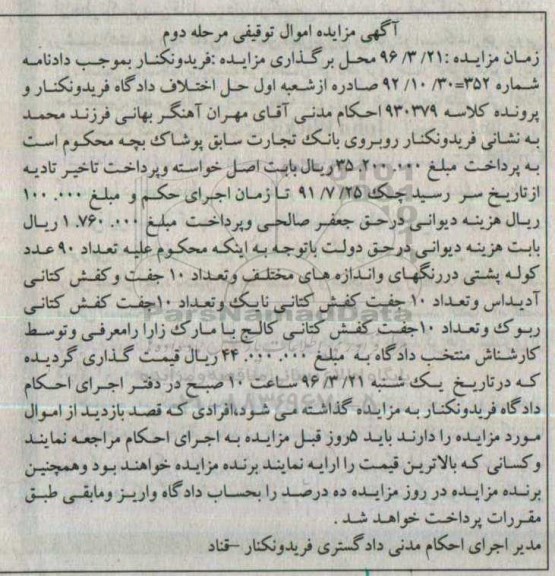 آگهی مزایده اموال توقیفی مرحله دوم
زمان مزایده :۲۱/ ۳/ ۹۶ محل برگذاری مزایده :فریدونکنار بموجب دادنامه
شماره ۳۵۲=۳۰/ ۱۰/ ۹۲ صادره ازشعبه اول حل اختلاف دادگاه فریدونکنار و
پرونده کلاسه ۹۳۰۳۷۹ احکام مدنی آقای مهران آهنگر بهانی فرزند محمد
به نشانی فریدونکنار روبروی بانک تجارت سابق پوشاک بچه محکوم است
به پرداخت مبلغ ۳۵،۲۰۰،۰۰۰ ریال بابت اصل خواسته وپرداخت تاخیر تادیه
ازتاریخ سر رسید چک ۲۵/ ۷/ ۹۱ تا زمان اجرای حکم و مبلغ ۰۰۰. ۱۰۰
ریال هزینه دیوانی درحق جعفر صالحی وپرداخت مبلغ ۰۰۰. ۷۶۰. ۱ ریال
بابت هزینه دیوانی درحق دولت باتوجه به اینکه محکوم علیه تعداد ۹۰ عدد
کوله پشتی دررنگهای واندازه های مختلف وتعداد ۱۰ جفت وکفش کتانی
آدیداس وتعداد ۱۰ جفت کفش کتانی نایک وتعداد ۱۰جفت کفش کتانی
ریوک وتعداد ۱۰جفت کفش کتانی کالج با مارک زارا رامعرفی وتوسط
کارشناش منتخب دادگاه به مبلغ ۰۰۰. ۰۰۰. ۴۴ ریال قیمت گذاری گردیده
که درتاریخ یک شنبه ۲۱/ ۳/ ۹۶ ساعت ۱۰ صبح در دفتر اجرای احکام
دادگاه فریدونکنار به مزایده گذاشته می شود،افرادی که قصد بازدید از اموال
مورد مزایده را دارند باید ۵روز قبل مزایده به اجرای احکام مراجعه نمایند
وکسانی که بالاترین قیمت را ارایه نمایند برنده مزایده خواهند بود وهمچنین
برنده مزایده در روز مزایده ده درصد را بحساب دادگاه واریز ومابقی طبق
مقررات پرداخت خواهد شد .
مدیر اجرای احکام مدنی دادگستری فریدونکنار –قناد
ParsNamadData